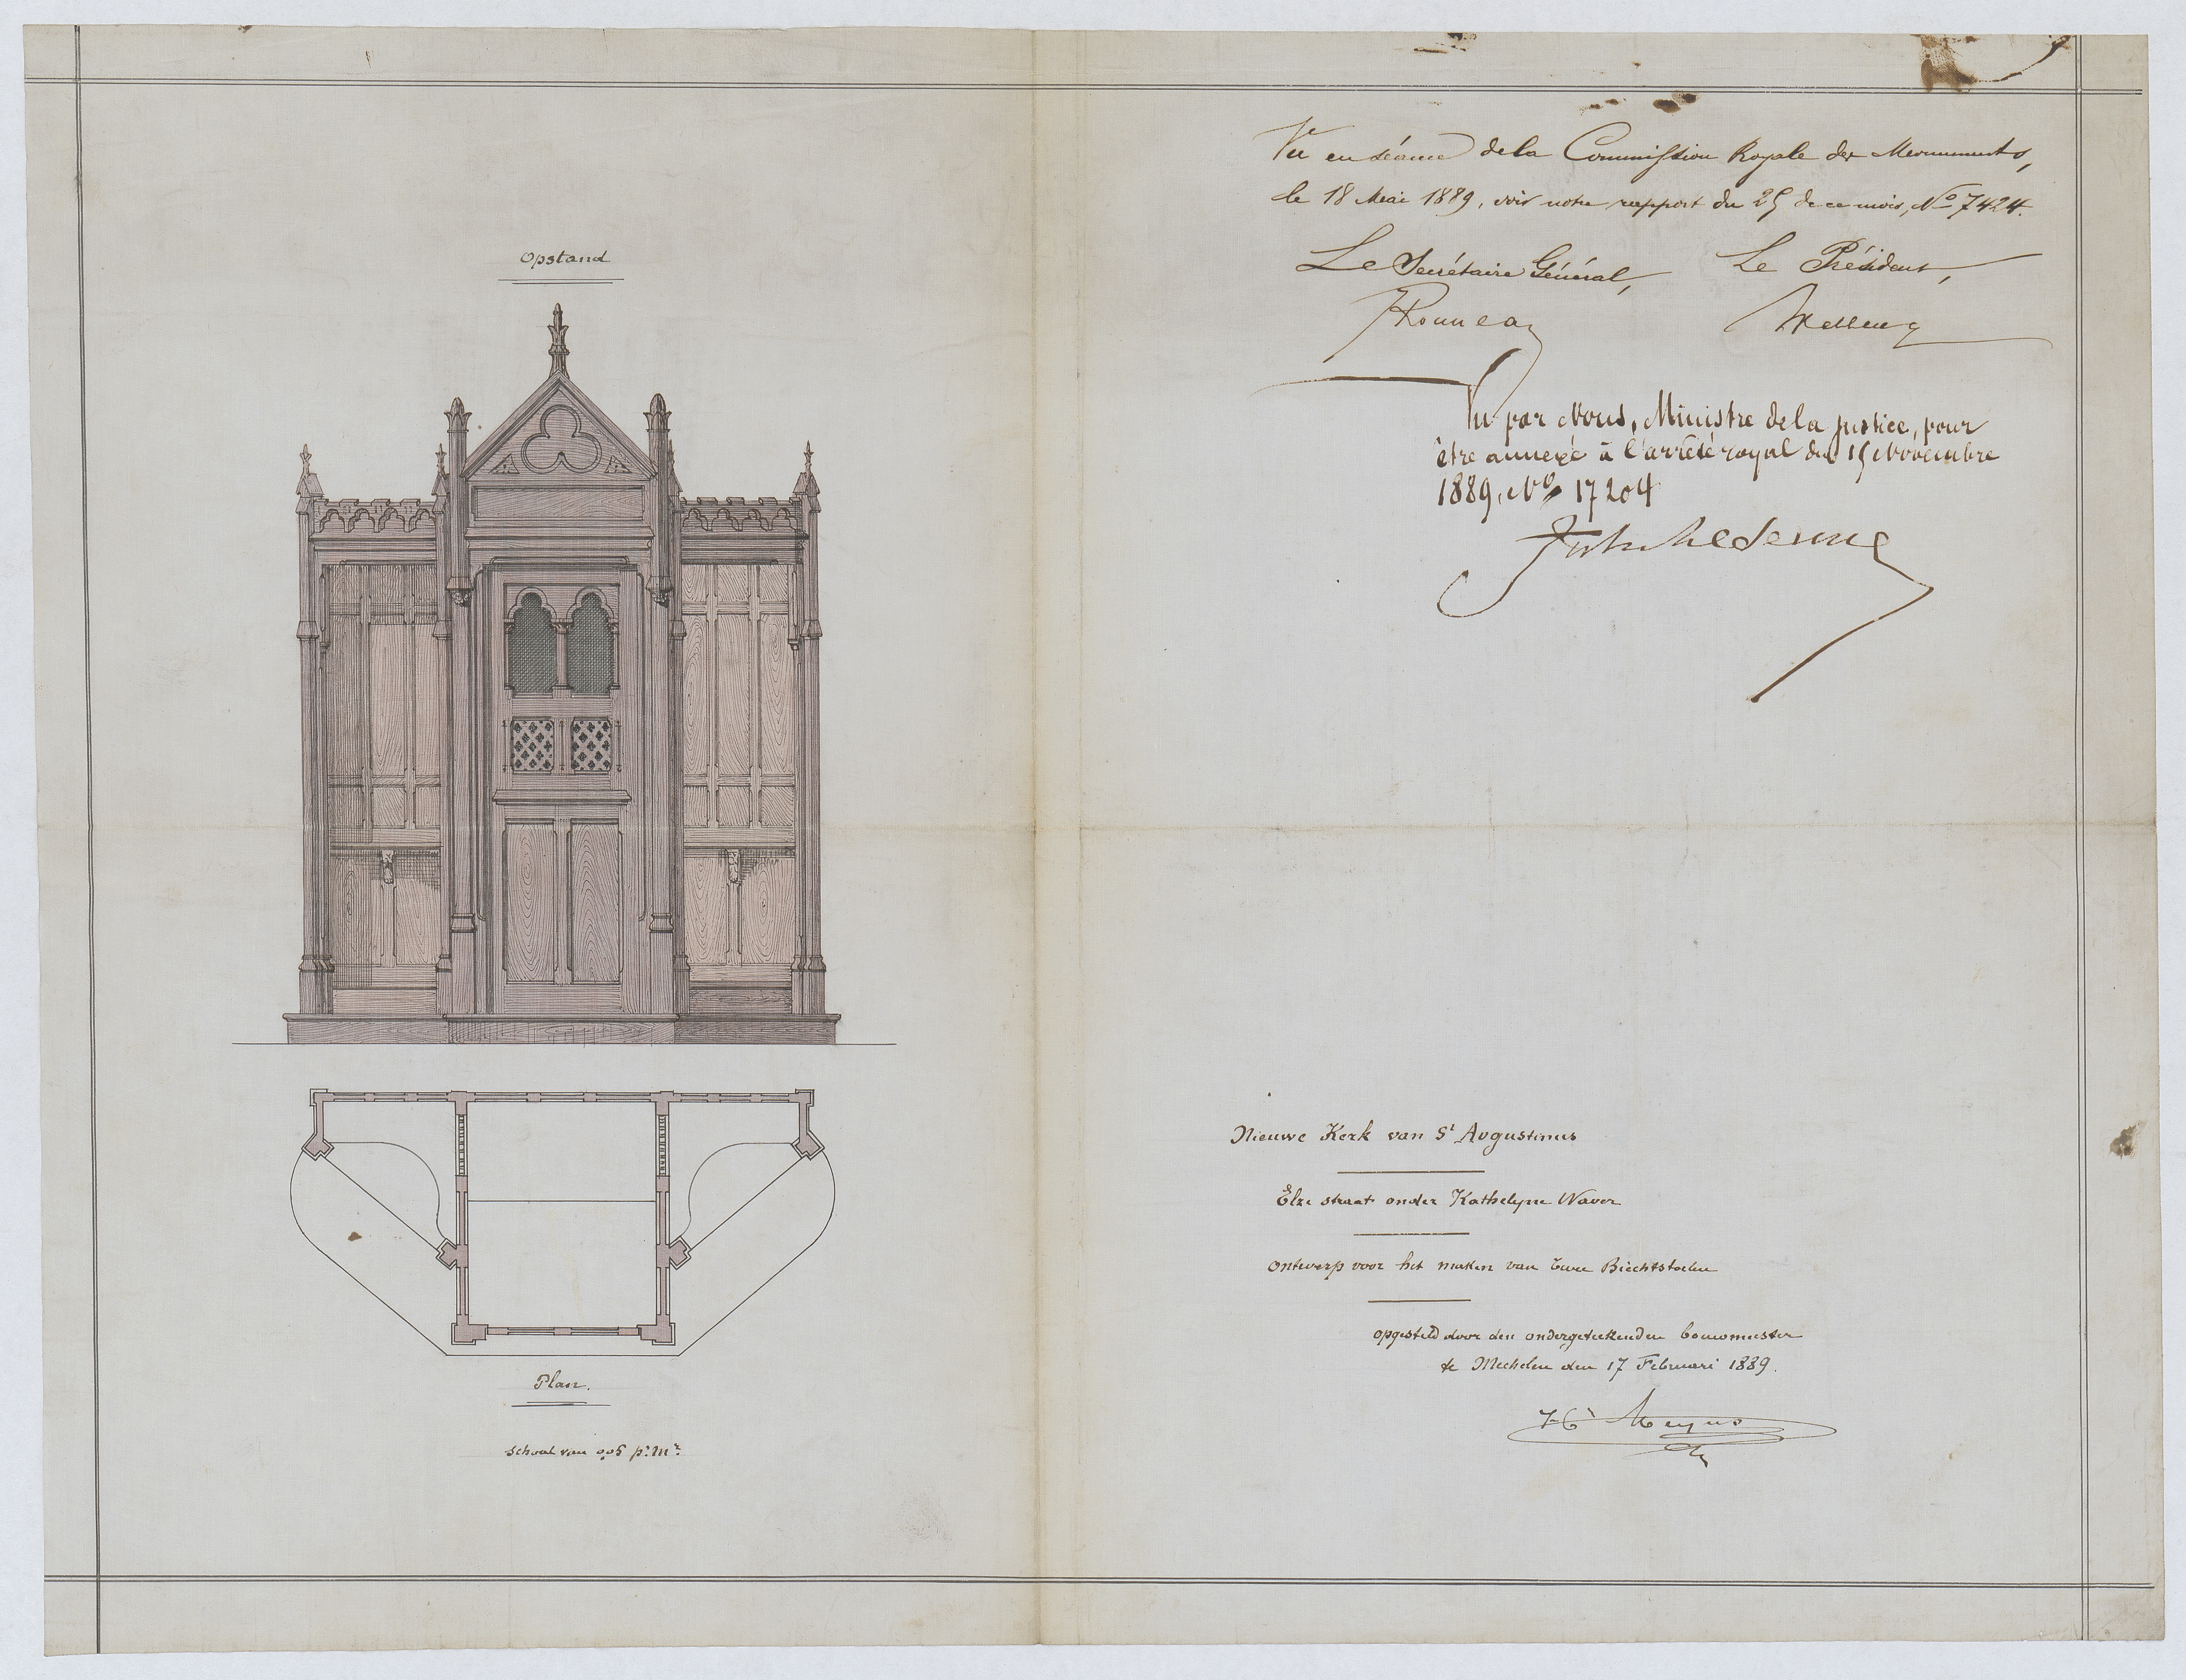 Opstand
Plan.
schaal van 0,05 pr. Mr.
Vu en séance de la Commission Royale des Monuments,
le 18 Mai 1889, voir notre rapport du 25 de ce mois, No 7424.
Le Secrétaire Général, Le Président,
Vu par Nous, Ministre de la Justice, pour
être annexé à l'arrêté royal du 15 Novembre
1889, No 17204
Nieuwe Kerk van St Augustinus
Elze straat onder Kathelyne Waver
ontwerp voor het maken van twee Biechtstoelen
opgesteld door den ondergeteekenden bouwmeester
te Mechelen den 17 Februari 1889.
Meyns